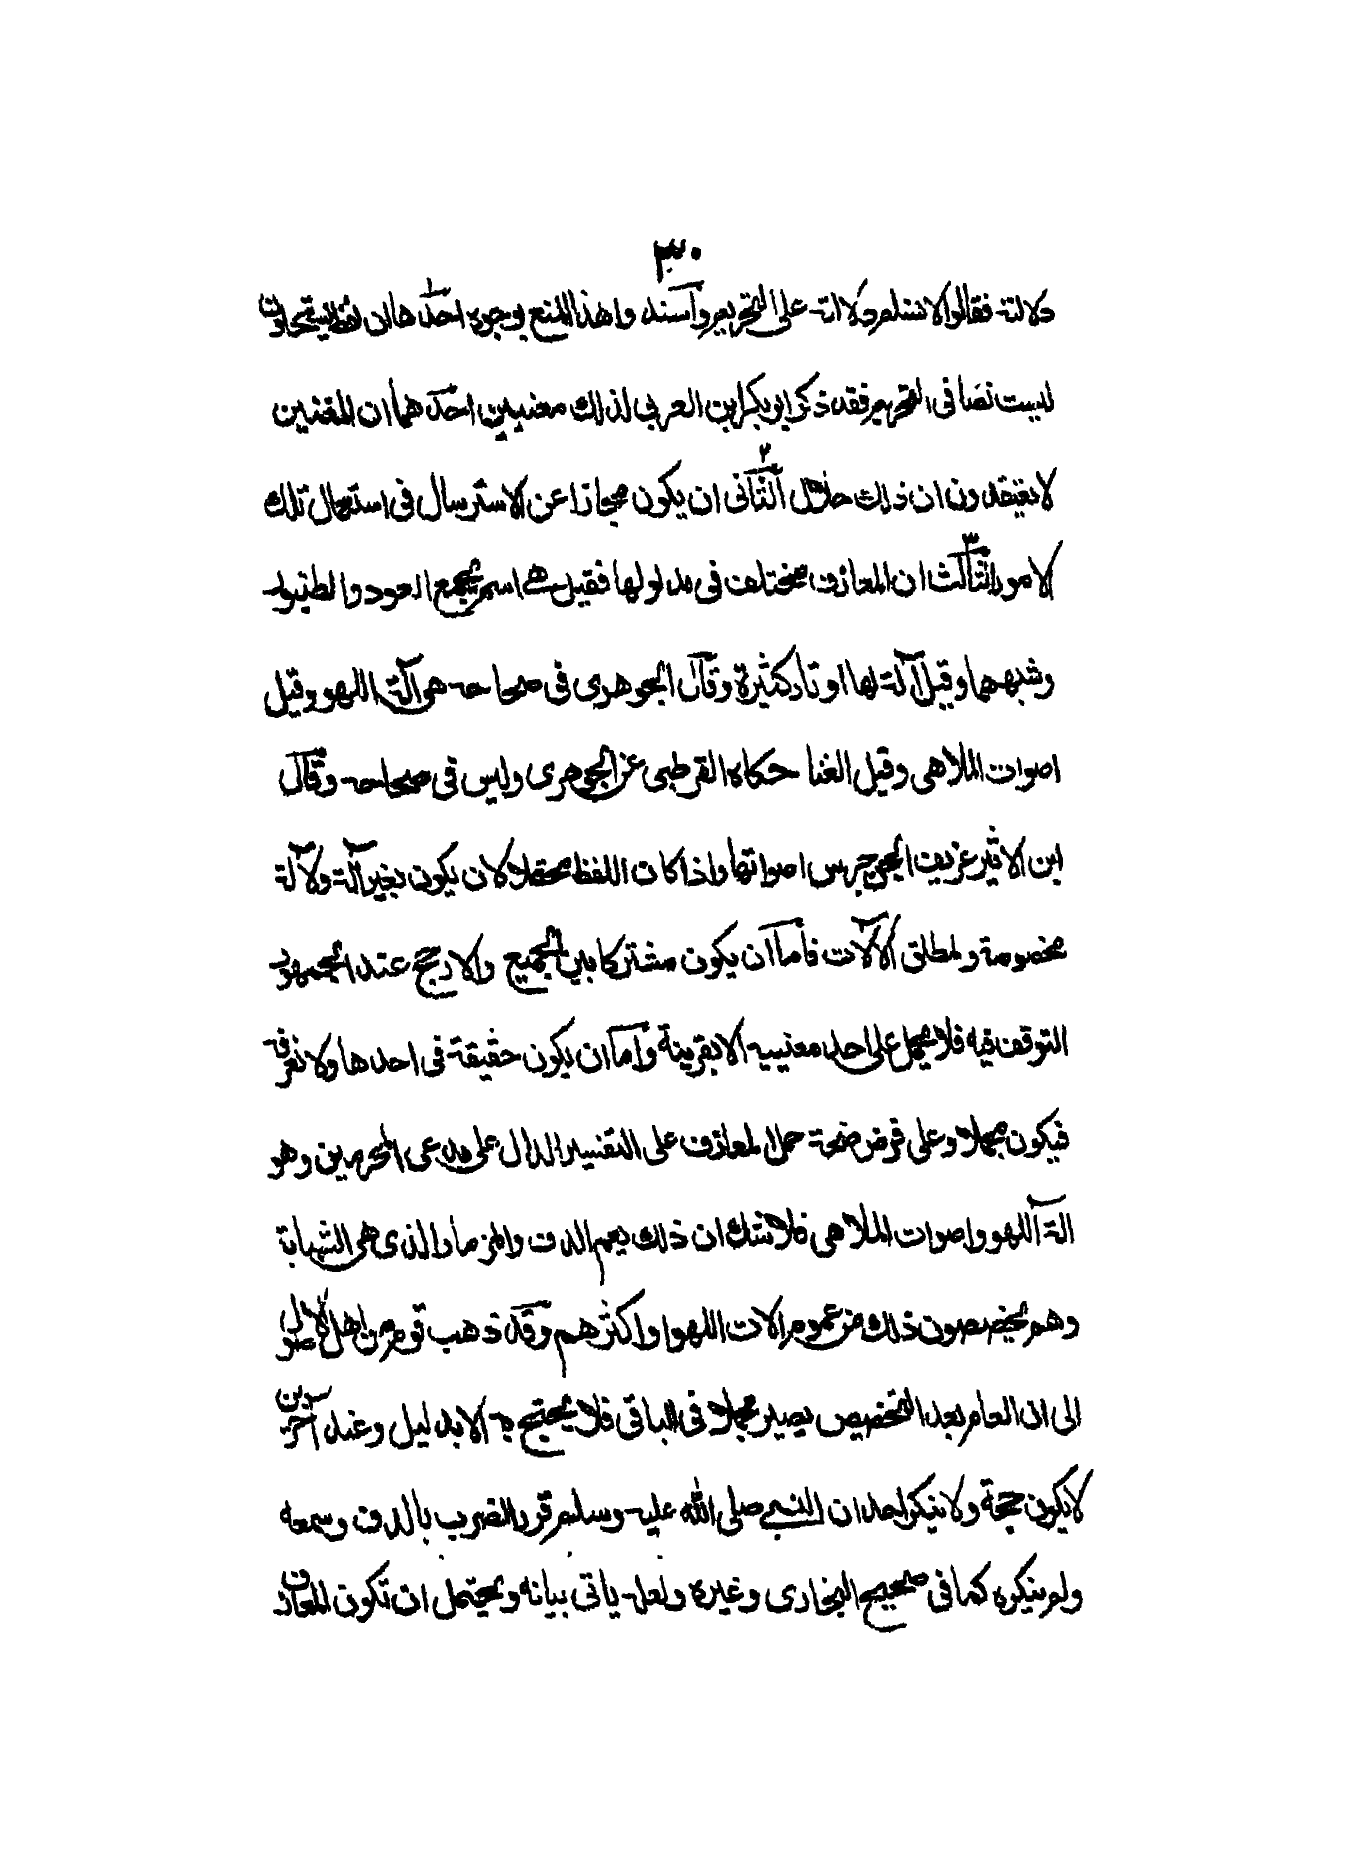 ٣٠
دلالته فقالوا لا نسلم دلالته على التحريم وأسندوا هذا المنع بوجوه احدها ان لفظة يستحلون
ليست نصا فى التحريم فقد ذكر ابو بكر ابن العربى لذلك معنيين احدهما ان المعنيين
لا يعتقدون ان ذلك حلال الثانى ان يكون مجازا عن الاسترسال فى استعمال تلك
الامور الثالث ان المعازف مختلف فى مدلولها فقيل هى اسم يجمع العود والطنبور
وشبههما وقيل آلة لها اوتار كثيرة وقال الجوهرى فى صحاحه هى آلة اللهو وقيل
اصوات الملاهى وقيل الغنا حكاه القرطبى عن الجوهرى وليس فى صحاحه وقال
ابن الاثير عزيف الجن جرس اصواتها واذا كان اللفظ محتملا لان يكون بغير آلة ولآلة
مخصوصة ولمطلق الآلات فأما أن يكون مشتركا بين الجميع والارجح عند الجمهور
التوقف فيه فلا يحمل على احد معنييه الا بقرينة وأما ان يكون حقيقة فى احدها ولا نعرفه
فيكون مجملا وعلى فرض صحة حمل المعازف على التفسير الدال على مدعى المحرمين وهو
الة اللهو واصوات الملاهى فلا شك ان ذلك يعم الدف والمزمار الذى هى الشبابة
وهم يخصصون ذلك من عموم الات اللهو او اكثرهم وقد ذهب قوم من اهل الاصول
الى ان العام بعد التخصيص يصير مجملا فى الباقى فلا يحتج به الا بدليل وعند آخرين
لا يكون حجة ولا ينكر احد ان النبى صلى الله عليه وسلم قرر الضرب بالدف وسمعه
ولم ينكره كما فى صحيح البخارى وغيره ولعله ياتى بيانه ويحتمل ان تكون المعازف